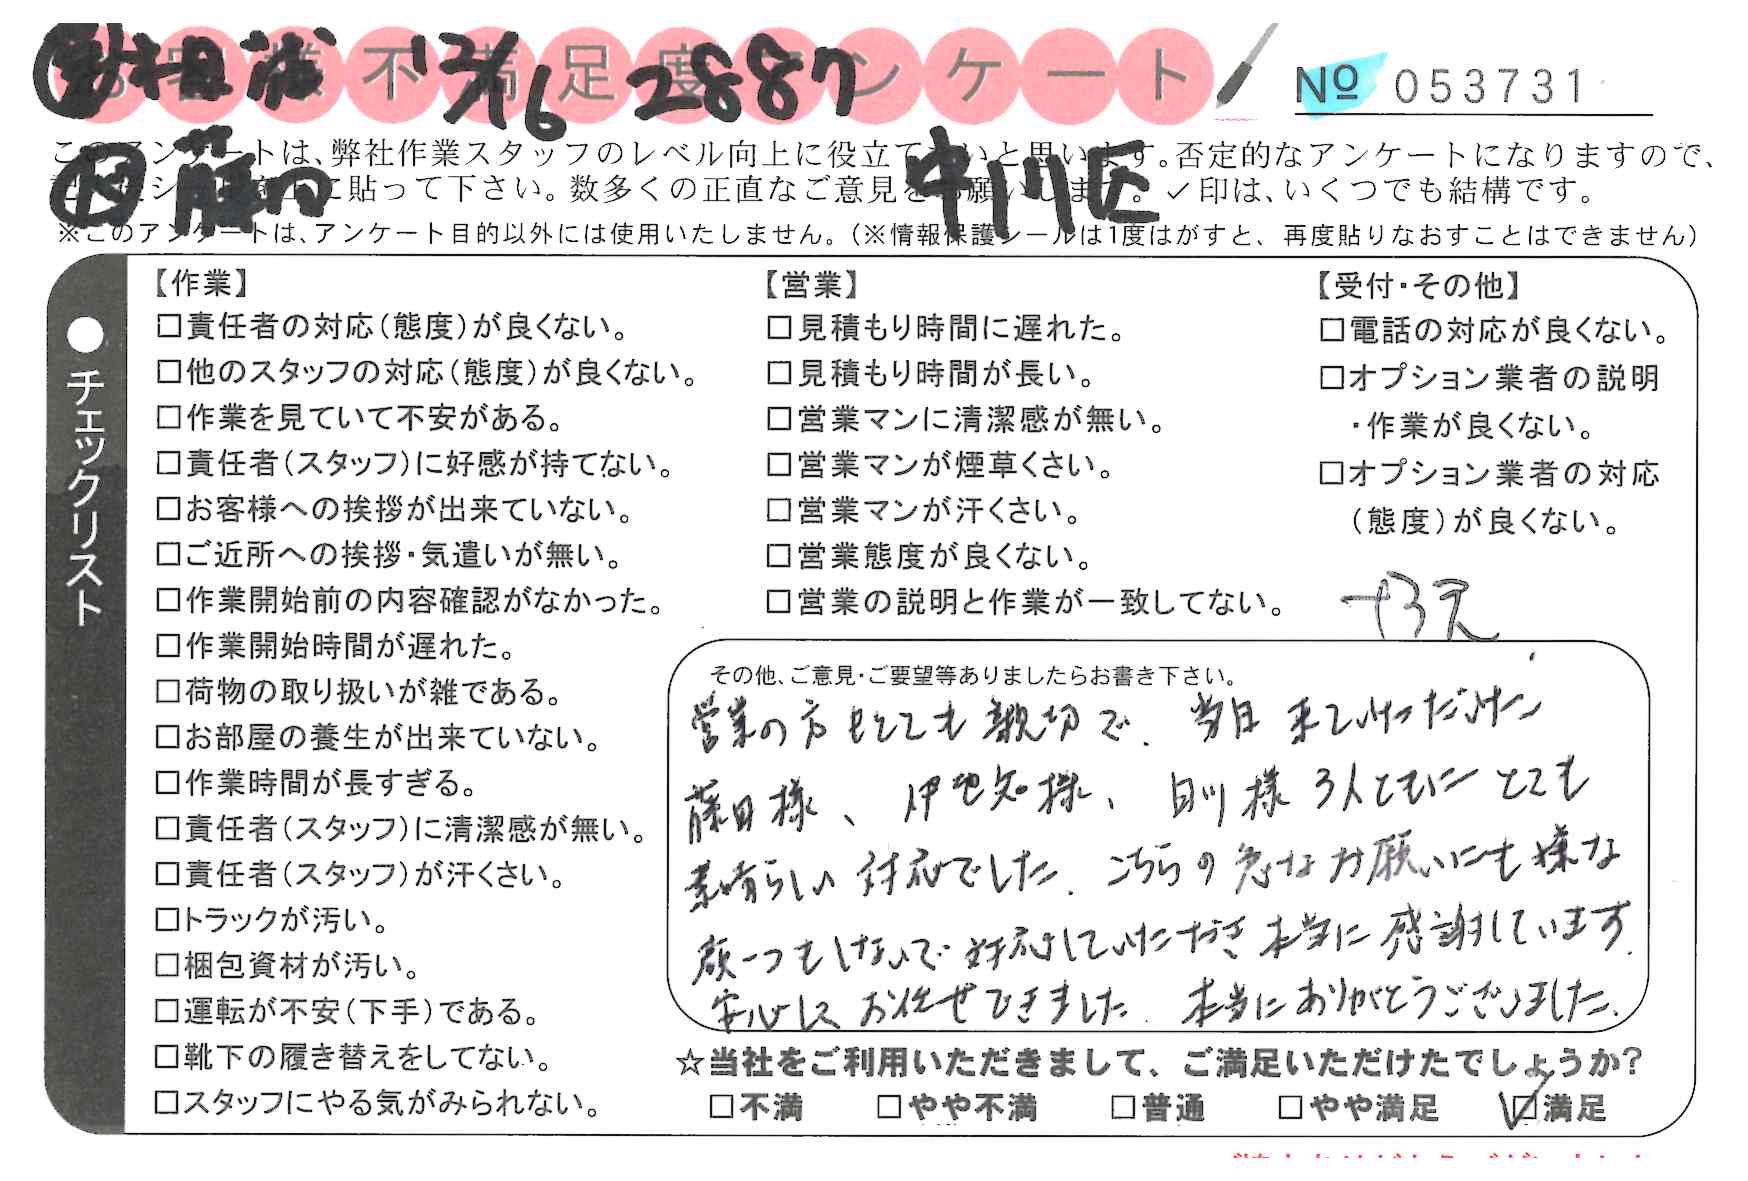 お客様不満足度アンケート
12/16 2887
№ 053731
このアンケートは、弊社作業スタッフのレベル向上に役立てたいと思います。否定的なアンケートになりますので、
中川区
に貼って下さい。数多くの正直なご意見をお願いします。✓印は、いくつでも結構です。
※このアンケートは、アンケート目的以外には使用いたしません。(※情報保護シールは1度はがすと、再度貼りなおすことはできません)
●チェックリスト
【作業】
□責任者の対応(態度)が良くない。
□他のスタッフの対応(態度)が良くない。
□作業を見ていて不安がある。
□責任者(スタッフ)に好感が持てない。
□お客様への挨拶が出来ていない。
□ご近所への挨拶・気遣いが無い。
□作業開始前の内容確認がなかった。
□作業開始時間が遅れた。
□荷物の取り扱いが雑である。
□お部屋の養生が出来ていない。
□作業時間が長すぎる。
□責任者(スタッフ)に清潔感が無い。
□責任者(スタッフ)が汗くさい。
□トラックが汚い。
□梱包資材が汚い。
□運転が不安(下手)である。
□靴下の履き替えをしてない。
□スタッフにやる気がみられない。
【営業】
□見積もり時間に遅れた。
□見積もり時間が長い。
□営業マンに清潔感が無い。
□営業マンが煙草くさい。
□営業マンが汗くさい。
□営業態度が良くない。
□営業の説明と作業が一致してない。
【受付・その他】
□電話の対応が良くない。
□オプション業者の説明
・作業が良くない。
□オプション業者の対応
(態度)が良くない。
その他、ご意見・ご要望等ありましたらお書き下さい。
営業の方もとても親切で、当日来ていただいた
藤田様、伊地知様、様3人ともにとても
素晴らしい対応でした。こちらの急なお願いにも嫌な
顔一つもしないで対応していただき本当に感謝しています。
安心してお任せできました。本当にありがとうございました。
☆当社をご利用いただきまして、ご満足いただけたでしょうか?
□不満 □やや不満 □普通 □やや満足 ☑満足